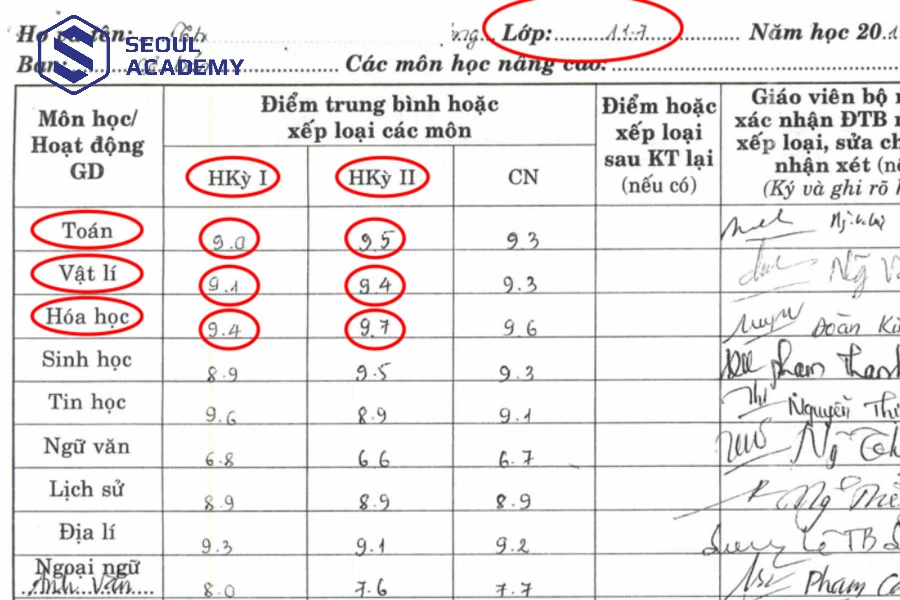 SEOUL
ACADEMY
Họ và tên: Lớp: 11.7 Năm học 20
Ban: Các môn học nâng cao:
Môn học/
Hoạt động
GD
Điểm trung bình hoặc
xếp loại các môn
HKỳ I HKỳ II CN
Điểm hoặc
xếp loại
sau KT lại
(nếu có)
Giáo viên bộ
xác nhận ĐTB
xếp loại, sửa
nhận xét
(Ký và ghi rõ
Toán 9.0 9.5 9.3
Vật lí 9.1 9.4 9.3
Hóa học 9.4 9.7 9.6 Đoàn
Sinh học 8.9 9.5 9.3 Phạm Thanh
Tin học 9.6 8.9 9.1 Nguyễn
Ngữ văn 6.8 6.6 6.7
Lịch sử 8.9 8.9 8.9
Địa lí 9.3 9.1 9.2 Lê TB
Ngoại ngữ
Anh Văn 8.0 7.6 7.7 Pham